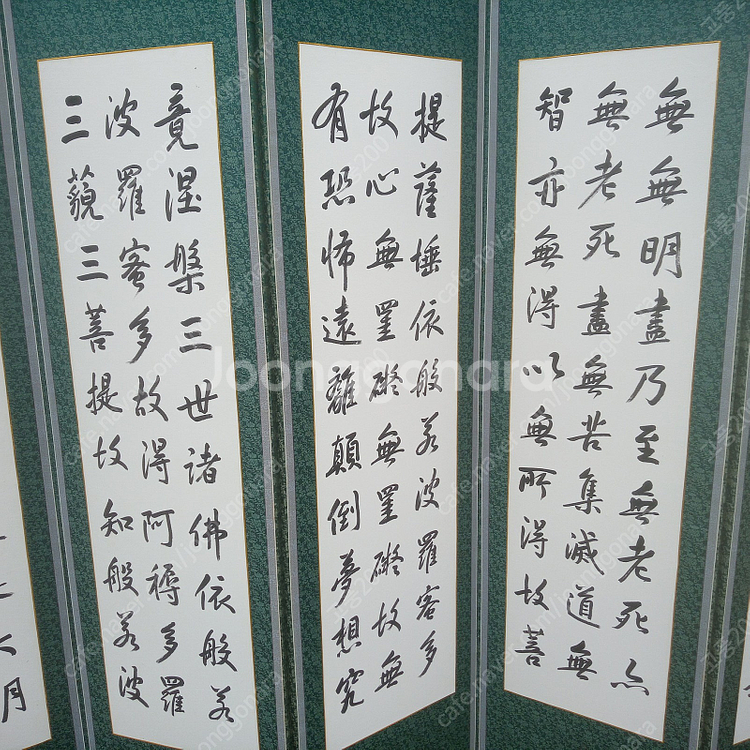 無無明盡乃至無老死亦
無老死盡無苦集滅道無
智亦無得以無所得故菩
提薩埵依般若波羅密多
故心無罣礙無罣礙故無
有恐怖遠離顚倒夢想究
竟涅槃三世諸佛依般若
波羅密多故得阿耨多羅
三藐三菩提故知般若波
月
Joonggonara
cafe.naver.com/joonggonara